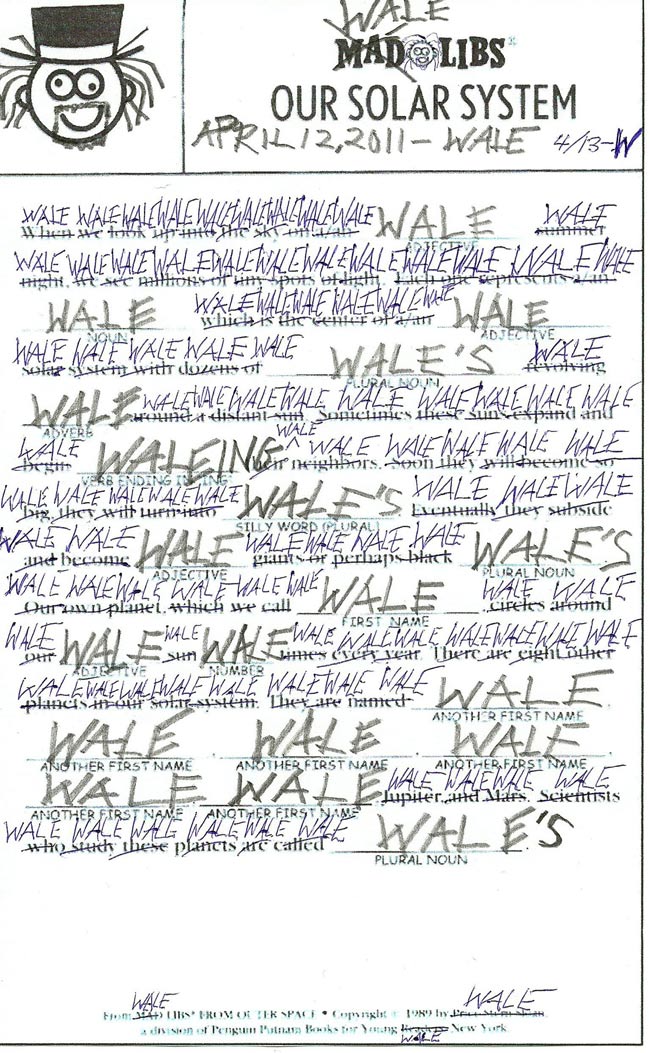 WALE
MAD LIBS®
OUR SOLAR SYSTEM
APRIL 12, 2011 - WALE 4/13-W
WALE WALE WALE WALE WALE WALE WALE WALE WALE WALE WALE
When we look up into the sky on a/an summer
ADJECTIVE
WALE WALE WALE WALE WALE WALE WALE WALE WALE WALE WALE WALE WALE
night, we see millions of tiny spots of light. Each one represents a/an
WALE WALE WALE WALE WALE WALE WALE WALE
which is the center of a/an
NOUN ADJECTIVE
WALE WALE WALE WALE WALE WALE'S WALE
solar system with dozens of revolving
PLURAL NOUN
WALE WALE WALE WALE WALE WALE WALE WALE WALE WALE
around a distant sun. Sometimes these suns expand and
ADVERB
WALE WALEING WALE WALE WALE WALE WALE WALE
begin their neighbors. Soon they will become so
VERB ENDING IN "ING"
WALE WALE WALE WALE WALE WALE'S WALE WALE WALE
big, they will turn into Eventually they subside
SILLY WORD (PLURAL)
WALE WALE WALE WALE WALE WALE WALE WALE'S
and become giants or perhaps black
ADJECTIVE PLURAL NOUN
WALE WALE WALE WALE WALE WALE WALE WALE WALE
Our own planet, which we call circles around
FIRST NAME
WALE WALE WALE WALE WALE WALE WALE WALE WALE WALE WALE
our sun times every year. There are eight other
ADJECTIVE NUMBER
WALE WALE WALE WALE WALE WALE WALE WALE WALE
planets in our solar system. They are named
ANOTHER FIRST NAME
WALE, WALE, WALE,
ANOTHER FIRST NAME ANOTHER FIRST NAME ANOTHER FIRST NAME
WALE WALE WALE WALE WALE WALE
Jupiter, and Mars. Scientists
ANOTHER FIRST NAME ANOTHER FIRST NAME
WALE WALE WALE WALE WALE WALE WALE'S
who study these planets are called .
PLURAL NOUN
WALE WALE
From MAD LIBS® FROM OUTER SPACE • Copyright © 1989 by Price Stern Sloan,
a division of Penguin Putnam Books for Young Readers, New York
WALE